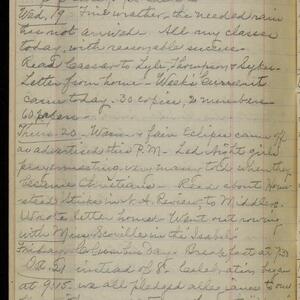 Wed, 19 - Fine weather, the needed rain
has not arrived. All my classes
today, with reasonable success.
Read Caesar to Lyle, Thompson & Sykes.
Letter from home - Week's Current
came today. 30 copies, 2 members
60 papers.
Thurs. 20 - Warm & fair Eclipse came off
as advertised this P.M. - Led night girls
prayer meeting very many to ch when they
became Christians - Read about Home
stead Strike in N. A. Review to Middlers.
Wrote letter home. Went out rowing
with Miss Seville in the "Isabel"
Friday Columbus Day. Breakfast at 7.30
Oct 21 instead of 8. Celebrating began
at 9.45. we all pledged allegiance to our